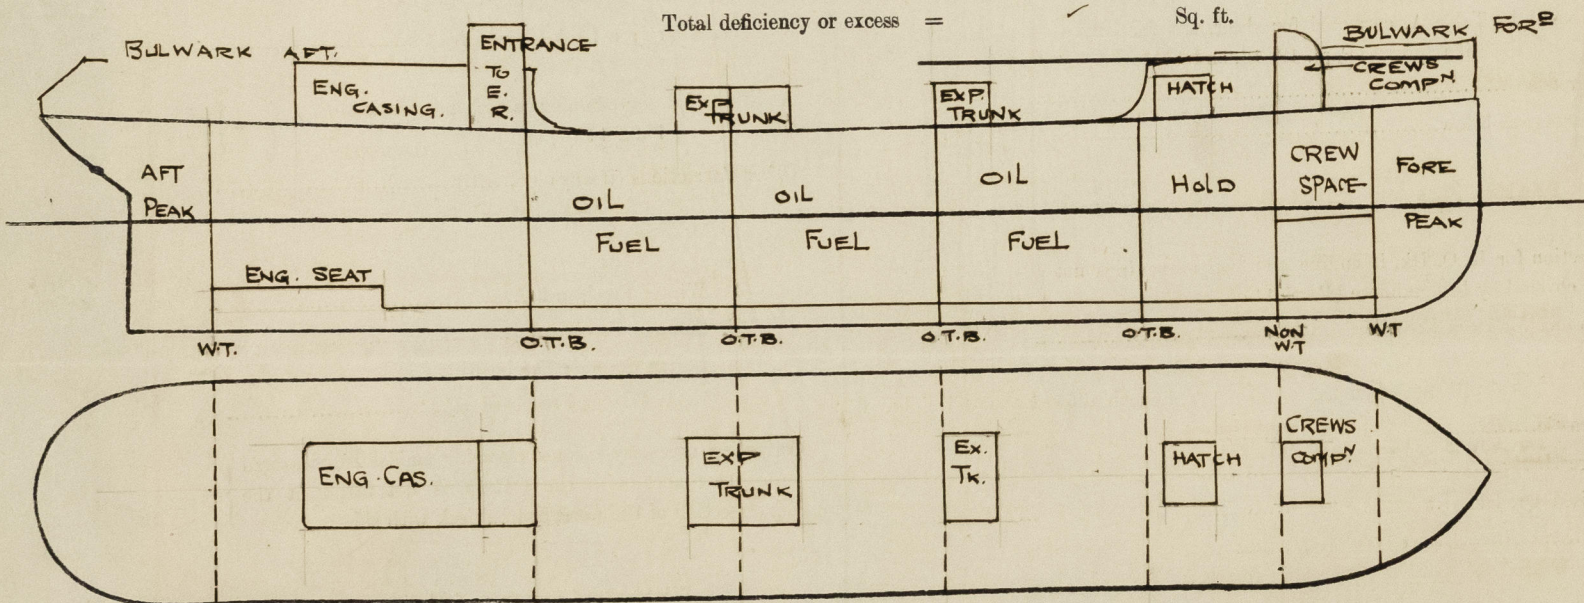 Total deficiency or excess = ✓ Sq. ft.
BULWARK AFT.
ENTRANCE
TO
E.
R.
BULWARK FORD
ENG.
CASING.
EXP
TRUNK
EXP.
TRUNK
HATCH
CREWS
COMPN
AFT
PEAK
OIL
FUEL
OIL
FUEL
OIL
FUEL
HOLD
CREW
SPACE
FORE
PEAK
ENG. SEAT
W.T.
O.T.B.
O.T.B.
O.T.B.
O.T.B.
NON
W.T
W.T
ENG. CAS.
EXP
TRUNK
EX.
TK.
HATCH
CREWS
COMPN